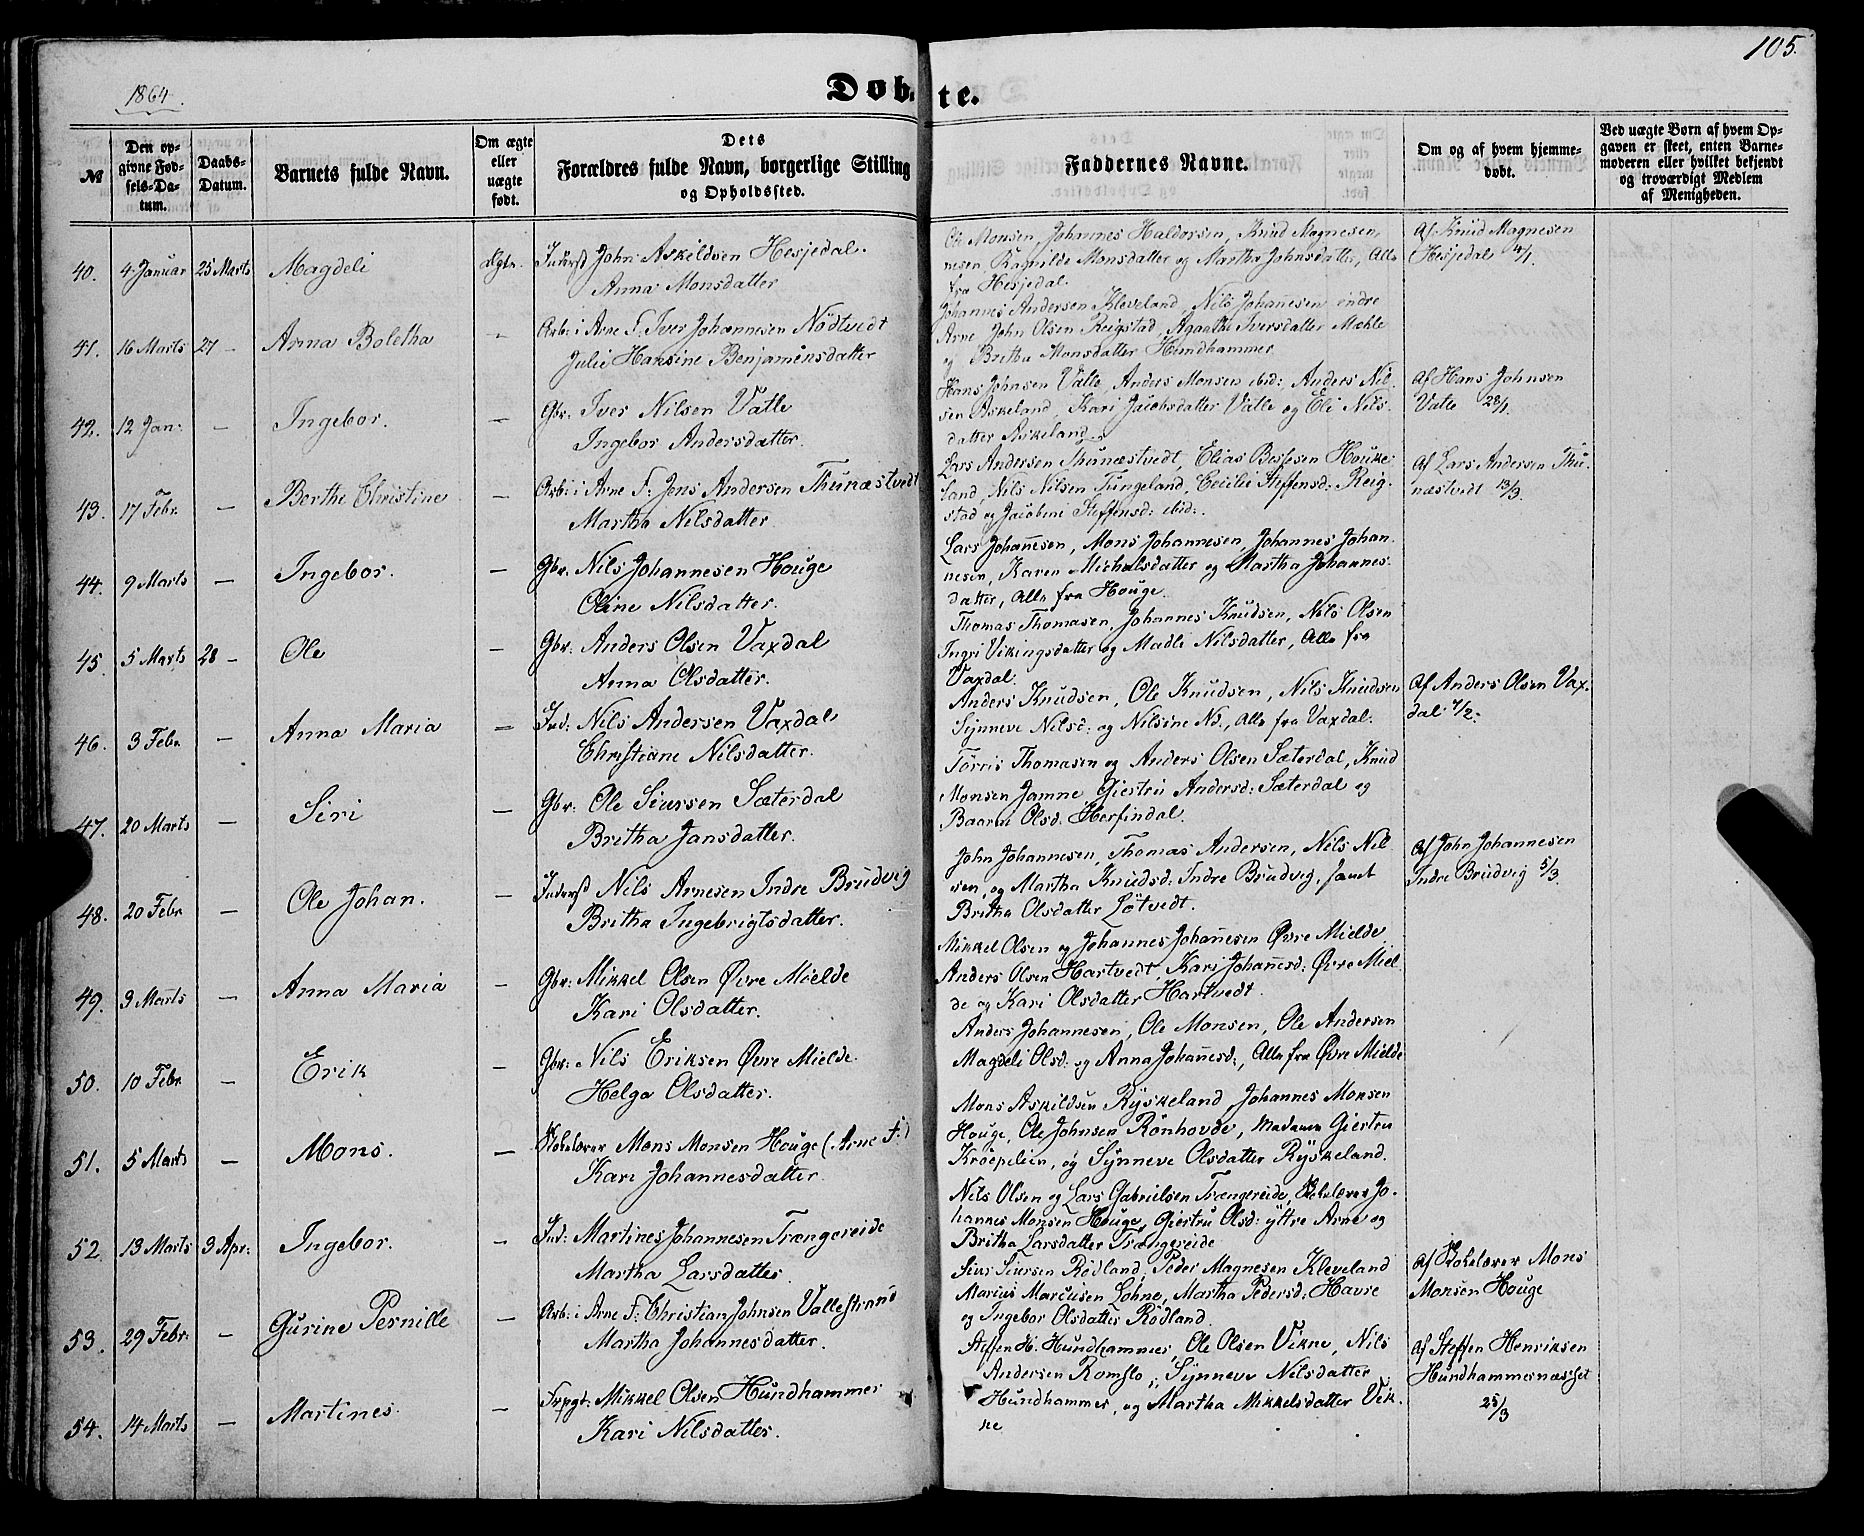 105.
1864.
Døbte.
№
Den opgivne Fødsels-Datum.
Daabs-Datum.
Barnets fulde Navn.
Om ægte eller uægte født.
Dets Forældres fulde Navn, borgerlige Stilling og Opholdssted.
Faddernes Navne.
Om og af hvem hjemmedøbt.
Ved uægte Børn af hvem Opgaven er skeet, enten Barnemoderen eller hvilket bekjendt og troværdigt Medlem af Menigheden.
40. 4. Januar 25 Marts Magdeli ægte. Inderst John Askildsen Hesjedal.
Anna Monsdatter
Ole Monsen, Johannes Haldorsen, Knud Magnesen,
Ragnilde Monsdatter og Martha Johnsdatter, Alle
fra Hesjedal.
Af Knud Magnesen
Hesjedal 4/1.
41. 16 Marts 27 – Anna Boletha – Arb: i Arne F: Iver Johannesen Nödtvedt
Julie Hansine Benjaminsdatter
Johannes Andersen Kleveland, Nils Johanesen indre
Arne John Olsen Reigstad, Agathe Iversdatter Mæhle
og Britha Monsdatter Hundhammer
42. 12 Jan: – Ingebor. – Gbr: Iver Nilsen Valle
Ingebor Andersdatter.
Hans Johnsen Valle, Anders Monsen ibid: Anders Nil-
sen Askeland, Kari Jacobsdatter Valle og Eli Nils-
datter Askeland.
Af Hans Johnsen
Valle 28/1.
43. 17 Febr. – Berthe Christine – Arb: i Arne F: Jens Andersen Thunæstvedt
Martha Nilsdatter.
Lars Andersen Thunæstvedt, Elias Besesen Houke-
land, Nils Nilsen Tungeland, Cecilie Steffensd: Reig-
stad og Jacobine Steffensd: ibid:.
Af Lars Andersen Thu-
næstvedt 13/3.
44. 9 Marts – Ingebor. – Gbr: Nils Johannesen Houge
Oline Nilsdatter.
Lars Johanesen, Mons Johannesen, Johannes Johan-
nesen, Karen Michelsdatter og Martha Johannes-
datter, Alle fra Houge.
45. 5 Marts 28 – Ole – Gbr: Anders Olsen Vaxdal
Anna Olsdatter.
Thomas Thomasen, Johannes Knudsen, Nils Olsen
Ingri Vikingsdatter og Madli Nilsdatter, Alle fra
Vaxdal.
46. 3 Febr – Anna Maria – Ind: Nils Andersen Vaxdal
Christiane Nilsdatter.
Anders Knudsen, Ole Knudsen, Nils Knudsen
Synneve Nilsd: og Nilsine Nd., Alle fra Vaxdal.
Af Anders Olsen Vax-
dal 7/2.
47. 20 Marts – Siri – Gbr: Ole Siursen Sæterdal
Britha Jansdatter.
Torris Thomasen og Anders Olsen Sæterdal, Knud
Monsen Jamne Giertru Andersd: Sæterdal og
Olsd. Herfindal.
48. 20 Febr – Ole Johan. – Inderst Nils Arnesen Indre Brudvig
Britha Ingebrigtsdatter.
John Johannesen, Thomas Andersen, Nils Nil-
sen, og Martha Knudsd: Indre Brudvig, samt
Britha Olsdatter Lötvedt.
Af John Johannesen
Indre Brudvig 5/3.
49. 9 Marts – Anna Maria – Gbr: Mikkel Olsen Øvre Mielde
Kari Olsdatter.
Mikkel Olsen og Johannes Johanesen Øvre Mielde
Anders Olsen Hartvedt, Kari Johanesd: Øvre Miel-
de og Kari Olsdatter Hartvedt.
50. 10 Febr – Erik – Gbr: Nils Eriksen Øvre Mielde.
Helga Olsdatter.
Anders Johannesen, Ole Monsen, Ole Andersen
Magdeli Olsd: og Anna Johanesd:, Alle fra Øvre Mielde
51. 5 Marts – Mons. – Skolelærer Mons Monsen Houge (Arne F:)
Kari Johannesdatter.
Mons Askildsen Ryskeland, Johannes Monsen
Houge, Ole Johnsen Rönhovde, Madame Giertru
Kröepelien, og Synneve Olsdatter Ryskeland.
52. 13 Marts 3 Apr: Ingebor. – Ind: Martines Johannesen Trængereide
Martha Larsdatter.
Nils Olsen og Lars Gabrielsen Trængereide, Skolelærer Jo-
hannes Monsen Houge, Giertru Olsd: yttre Arne og
Britha Larsdatter Trængereide
53. 29 Febr: – Gurine Pernille – Arb: i Arne F: Christian Johnsen Vallestrand
Martha Johannesdatter.
Siur Siursen Rödland, Peder Magnesen Kleveland
Marius Marcusen Lone, Martha Pedersd: Havre
og Ingebor Olsdatter Rödland.
Af Skolelærer Mons
Monsen Houge
54. 14 Marts – Martines. – Mikkel Olsen Hundhammer
Kari Nilsdatter.
Steffen H. Hundhammer, Ole Olsen Vikne, Nils
Andersen Romslo, Synneve Nilsdatter
Hundhammer, og Martha Mikkelsdatter Vik-
ne
Af Steffen Henriksen
Hundhammernæsset
25/3